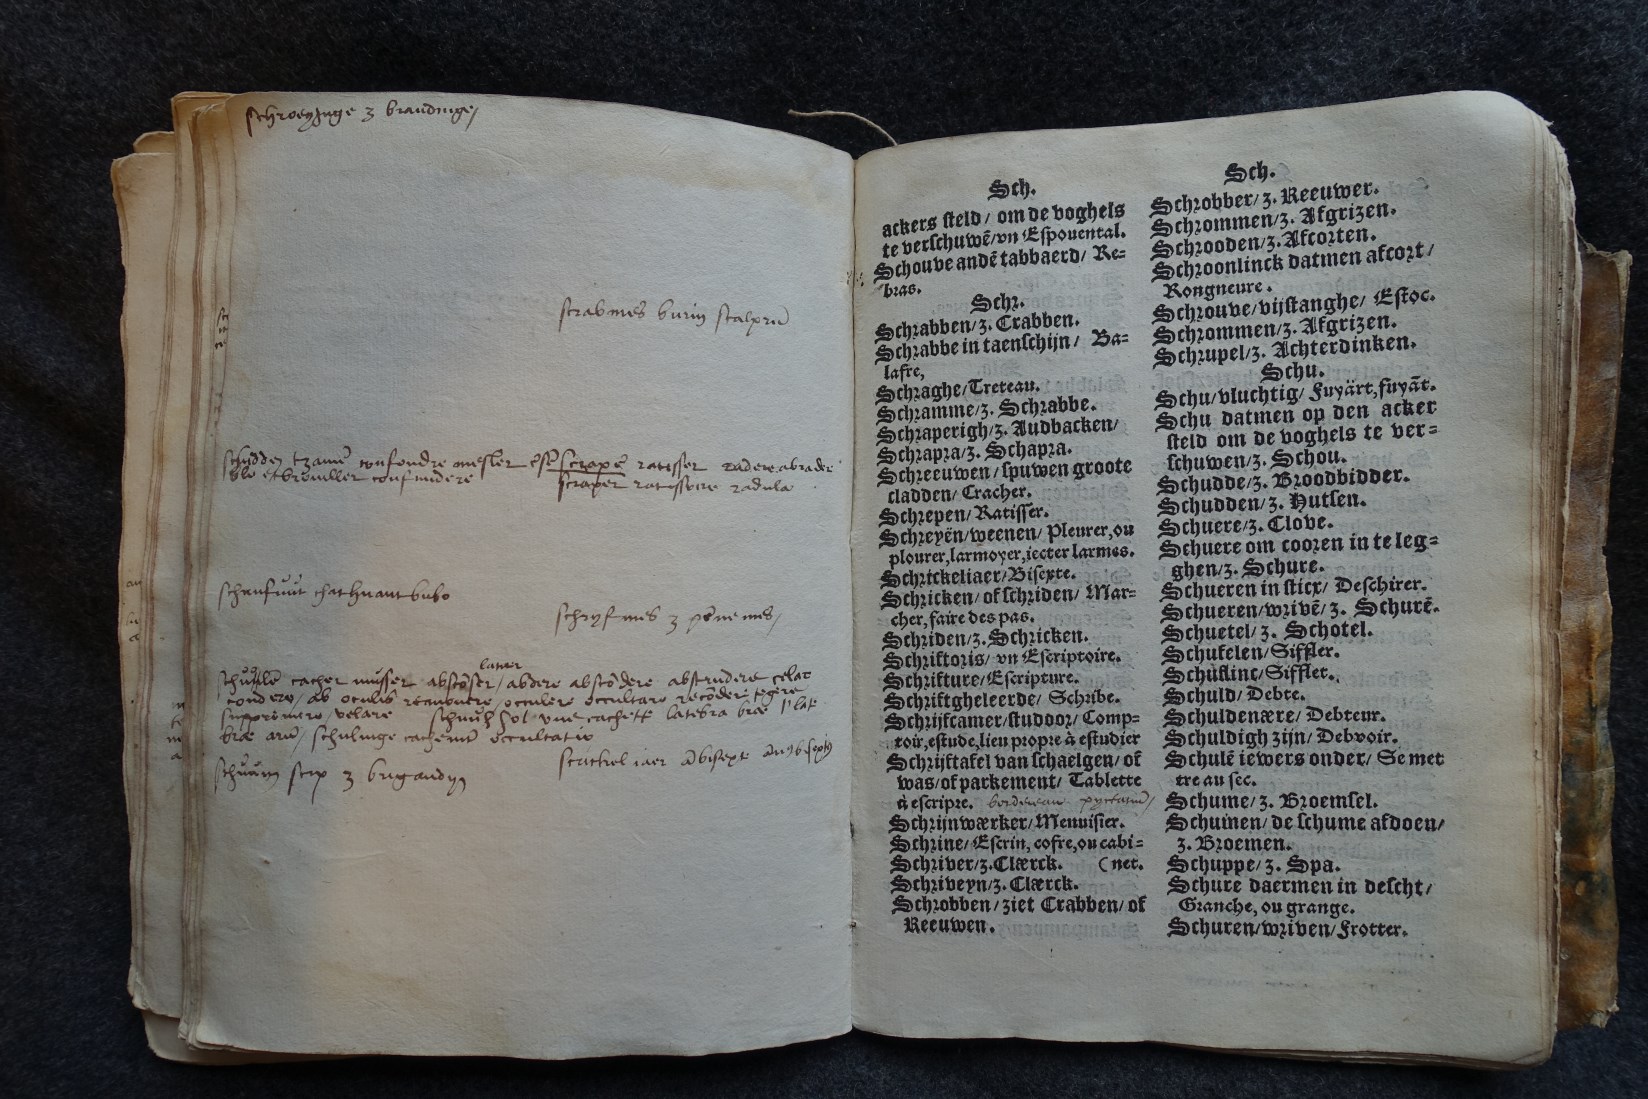 schroeyinge z brandinge/
scrabmes burin scalprū
confondre mesler
scrapē ratisser radere abradere
scraper ratissoire radula
schrufuut chathuant bubo
schryfmes z pēnemes/
latiter
cacher musser abscōser/ abdere abscōdere abstrudere celar
ab oculis remouere/occulere occultare recōdere tegere
supprimere/velare schuuil hol vne cachette latebra
schulinge cachemēt occultatio
scrickel iaer
schuum scip z brigandyn
Sch.
ackers steld/ om de voghels
te verschuwē/vn Espouental.
Schouve andē tabbaerd/ Re=
bras.
Schr.
Schrabben/z. Crabben.
Schrabbe in taenschijn/ Ba=
lafre,
Schraghe/Treteau.
Schramme/z. Schrabbe.
Schraperigh/z. Audbacken/
Schrapra/z. Schapra.
Schreeuwen/ spuwen groote
cladden/ Cracher.
Schrepen/ Ratisser.
Schreyēn/weenen/ Pleurer,ou
plourer,larmoyer,iecter larmes.
Schrickeliaer/Bisexte.
Schricken/ of schriden/ Mar=
cher, faire des pas.
Schriden/z. Schricken.
Schriftoris/ vn Escriptoire.
Schrifture/Escripture.
Schriftgheleerde/ Schribe.
Schrijfcamer/studoor/ Comp=
toir,estude,lieu propre à estudier
Schrijftafel van schaelgen/ of
was/of parkement/ Tablette
à escripre. bordereau
Schrijnwærker/Menuisier.
Schrine/Escrin, cofre,ou cabi=
Schriver/z.Clærck. (net.
Schriveyn/z. Clærck.
Schrobben/ ziet Crabben/ of
Reeuwen.
Sch.
Schrobber/z. Reeuwer.
Schrommen/z. Afgrizen.
Schrooden/z. Afcorten.
Schroonlinck datmen afcort/
Rongneure.
Schrouve/vijstanghe/ Estoc.
Schrommen/z. Afgrizen.
Schrupel/z. Achterdinken.
Schu.
Schu/vluchtig/ Fuyārt,fuyāt.
Schu datmen op den acker
steld om de voghels te ver=
schuwen/z. Schou.
Schudde/z. Broodbidder.
Schudden/z. Hutsen.
Schuere/z. Clove.
Schuere om cooren in te leg=
ghen/z. Schure.
Schueren in sticx/ Deschirer.
Schueren/wrivē/ z. Schurē.
Schuetel/z. Schotel.
Schufelen/Siffler.
Schuflinc/Sifflet.
Schuld/ Debte.
Schuldenære/ Debteur.
Schuldigh zijn/ Debvoir.
Schulē iewers onder/ Se met
tre au sec.
Schume/z. Broemsel.
Schumen/ de schume afdoen/
z. Broemen.
Schuppe/z. Spa.
Schure daermen in descht/
Granche, ou grange.
Schuren/wriven/Frotter.